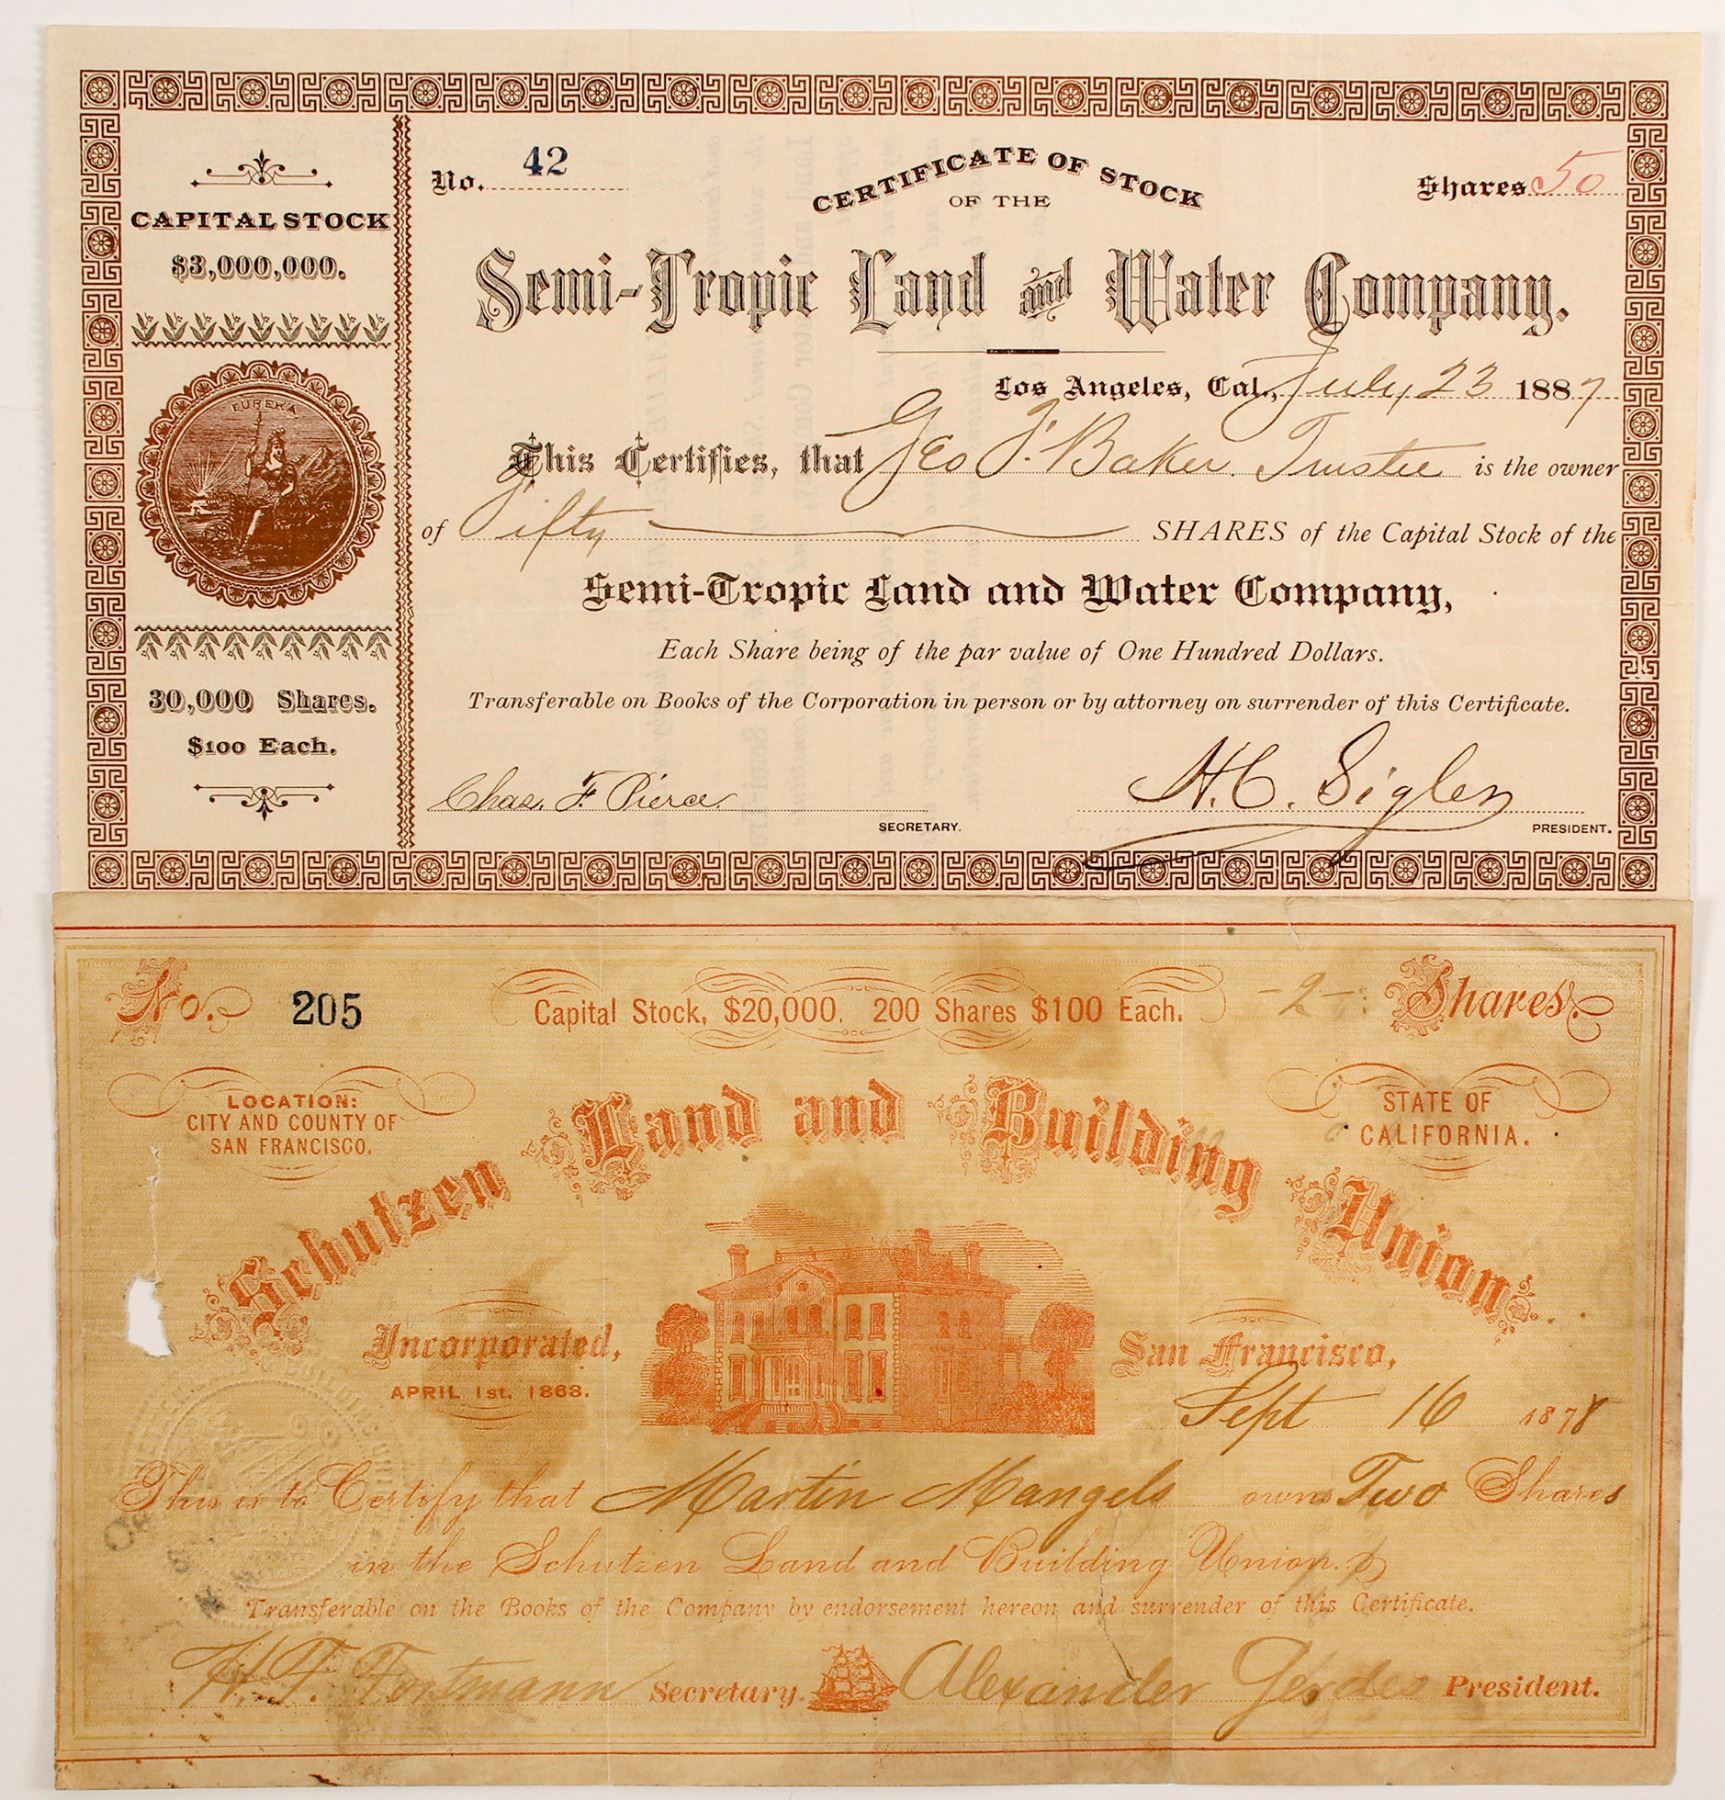 CAPITAL STOCK
$3,000,000.
EUREKA
30,000 Shares.
$100 Each.
No. 42
CERTIFICATE OF STOCK
OF THE
Shares 50
Semi-Tropic Land and Water Company.
Los Angeles, Cal., July 23 1887
This Certifies, that Geo F. Baker Trustee is the owner
of Fifty SHARES of the Capital Stock of the
Semi-Tropic Land and Water Company,
Each Share being of the par value of One Hundred Dollars.
Transferable on Books of the Corporation in person or by attorney on surrender of this Certificate.
Chas. F. Pierce H. C. Sigler
SECRETARY. PRESIDENT.
No. 205 Capital Stock, $20,000. 200 Shares $100 Each. -2- Shares
LOCATION:
CITY AND COUNTY OF
SAN FRANCISCO.
STATE OF
CALIFORNIA.
Schutzen Land and Building Union.
Incorporated, San Francisco,
APRIL 1st, 1868.
Sept 16 1878
This is to Certify that Martin Mangels owns Two Shares
in the Schutzen Land and Building Union.
Transferable on the Books of the Company by endorsement hereon and surrender of this Certificate.
H. F. Fortmann Secretary. Alexander Gerdes President.